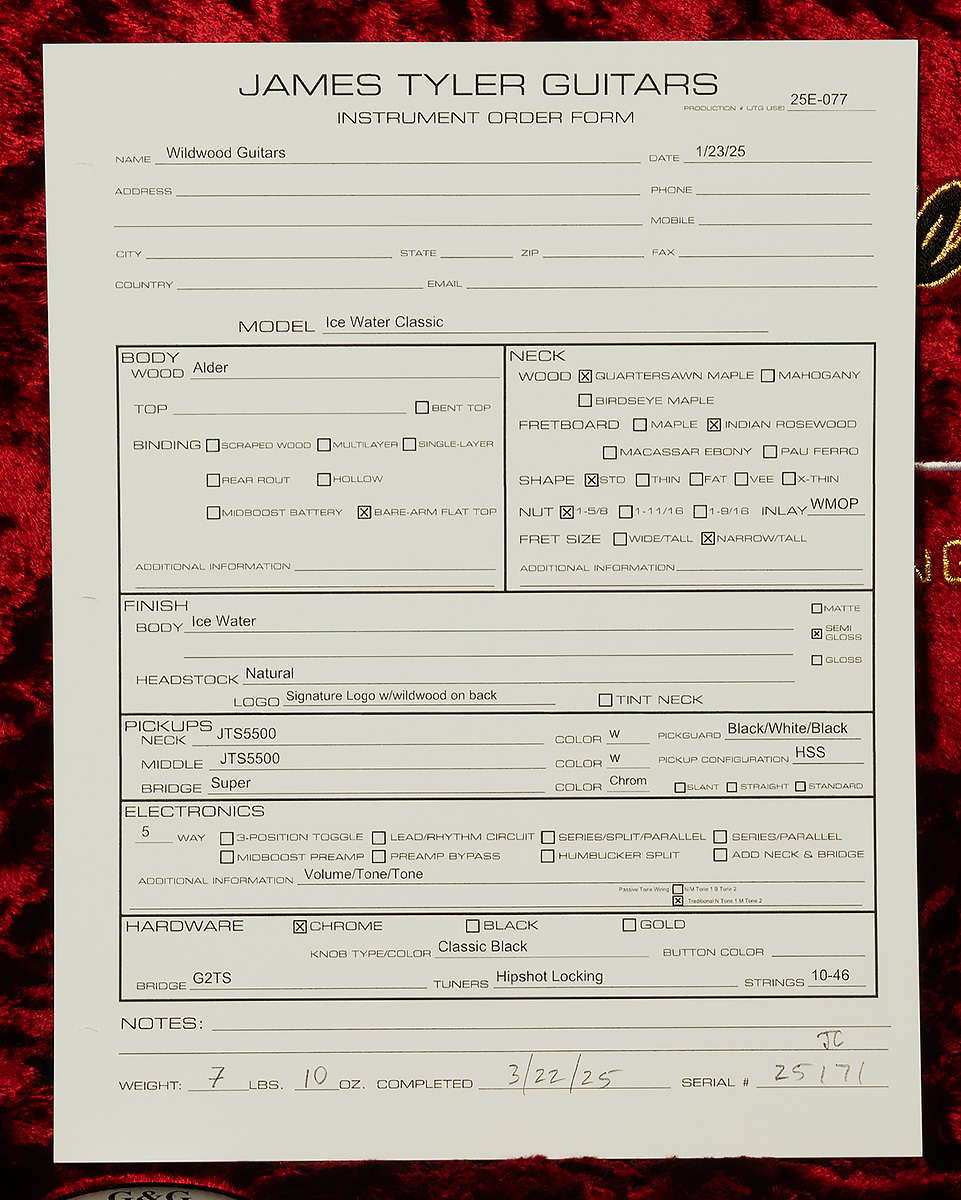 JAMES TYLER GUITARS
INSTRUMENT ORDER FORM
PRODUCTION # (JTG USE) 25E-077
NAME Wildwood Guitars DATE 1/23/25
ADDRESS PHONE
MOBILE
CITY STATE ZIP FAX
COUNTRY EMAIL
MODEL Ice Water Classic
BODY
WOOD Alder
TOP ☐ BENT TOP
BINDING ☐ SCRAPED WOOD ☐ MULTILAYER ☐ SINGLE-LAYER
☐ REAR ROUT ☐ HOLLOW
☐ MIDBOOST BATTERY ☒ BARE-ARM FLAT TOP
ADDITIONAL INFORMATION
NECK
WOOD ☒ QUARTERSAWN MAPLE ☐ MAHOGANY
☐ BIRDSEYE MAPLE
FRETBOARD ☐ MAPLE ☒ INDIAN ROSEWOOD
☐ MACASSAR EBONY ☐ PAU FERRO
SHAPE ☒ STD ☐ THIN ☐ FAT ☐ VEE ☐ X-THIN
NUT ☒ 1-5/8 ☐ 1-11/16 ☐ 1-9/16 INLAY WMOP
FRET SIZE ☐ WIDE/TALL ☒ NARROW/TALL
ADDITIONAL INFORMATION
FINISH
BODY Ice Water
☐ MATTE
☒ SEMI GLOSS
☐ GLOSS
HEADSTOCK Natural
LOGO Signature Logo w/wildwood on back ☐ TINT NECK
PICKUPS
NECK JTS5500 COLOR W PICKGUARD Black/White/Black
MIDDLE JTS5500 COLOR W PICKUP CONFIGURATION HSS
BRIDGE Super COLOR Chrom ☐ SLANT ☐ STRAIGHT ☐ STANDARD
ELECTRONICS
5 WAY ☐ 3-POSITION TOGGLE ☐ LEAD/RHYTHM CIRCUIT ☐ SERIES/SPLIT/PARALLEL ☐ SERIES/PARALLEL
☐ MIDBOOST PREAMP ☐ PREAMP BYPASS ☐ HUMBUCKER SPLIT ☐ ADD NECK & BRIDGE
ADDITIONAL INFORMATION Volume/Tone/Tone
Passive Tone Wiring ☐ N/M Tone 1 B Tone 2
☒ Traditional N Tone 1 M Tone 2
HARDWARE ☒ CHROME ☐ BLACK ☐ GOLD
KNOB TYPE/COLOR Classic Black BUTTON COLOR
BRIDGE G2TS TUNERS Hipshot Locking STRINGS 10-46
NOTES:
JC
WEIGHT: 7 LBS. 10 OZ. COMPLETED 3/22/25 SERIAL # 25171
G&G